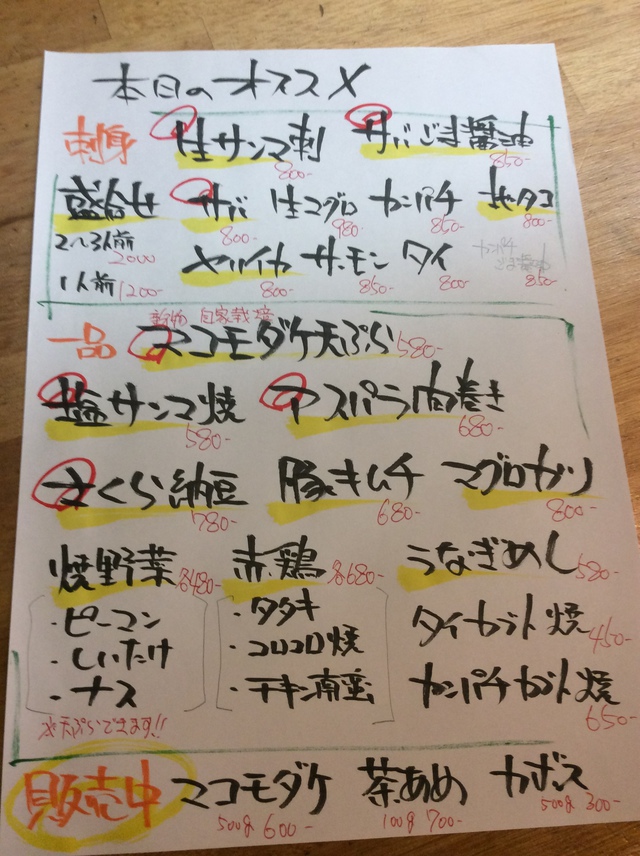 本日のオススメ
刺身 生サンマ刺 800- サバごま醤油 850-
盛合せ サバ 800- 生マグロ 980- カンパチ 850- 地タコ 800-
2〜3人前 2000
1人前 1200- ヤリイカ 800- サーモン 850- タイ 800- カンパチ 850-
新物 自家栽培
一品 マコモダケ天ぷら 580-
塩サンマ焼 580- アスパラ肉巻き 680-
さくら納豆 780- 豚キムチ 680- マグロカツ 800-
焼野菜 各480- 赤鶏 各680- うなぎめし 580-
・ピーマン ・タタキ タイカブト焼 450-
・しいたけ ・コロコロ焼
・ナス ・チキン南蛮 カンパチカブト焼 650-
※天ぷらできます!!
販売中 マコモダケ 500g 600- 茶あめ 100g 700- カボス 500g 300-